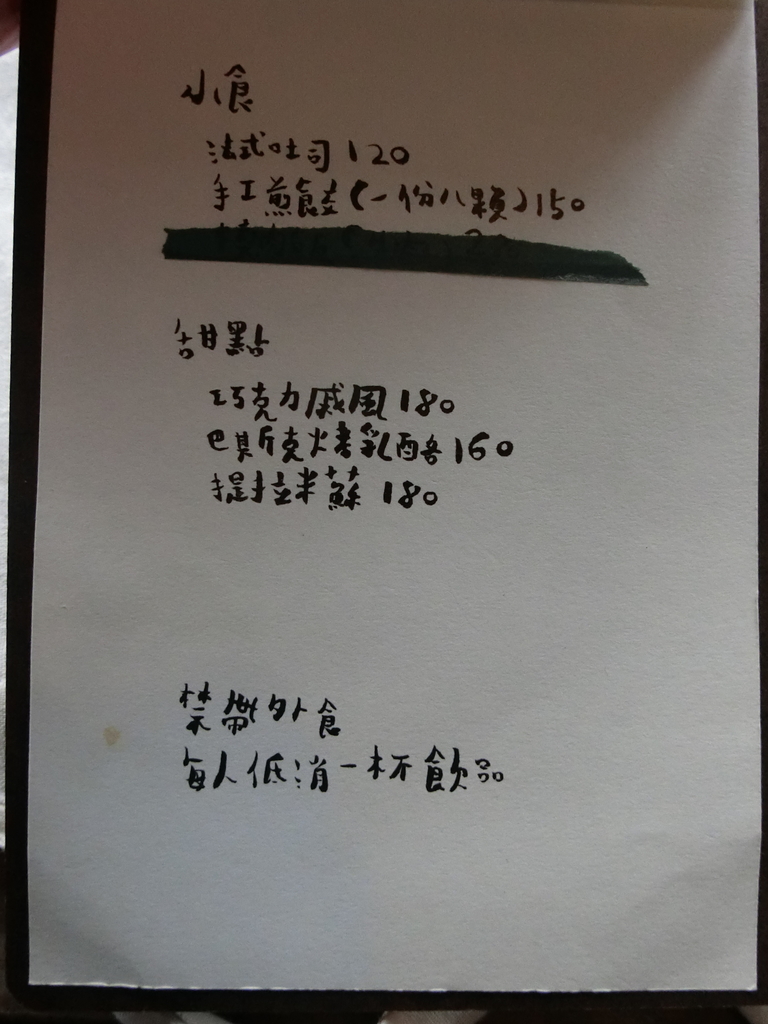 小食
法式吐司 120
手工煎餃(一份八顆)150
甜點
巧克力戚風 180
巴斯克烤乳酪 160
提拉米蘇 180
禁帶外食
每人低消一杯飲品